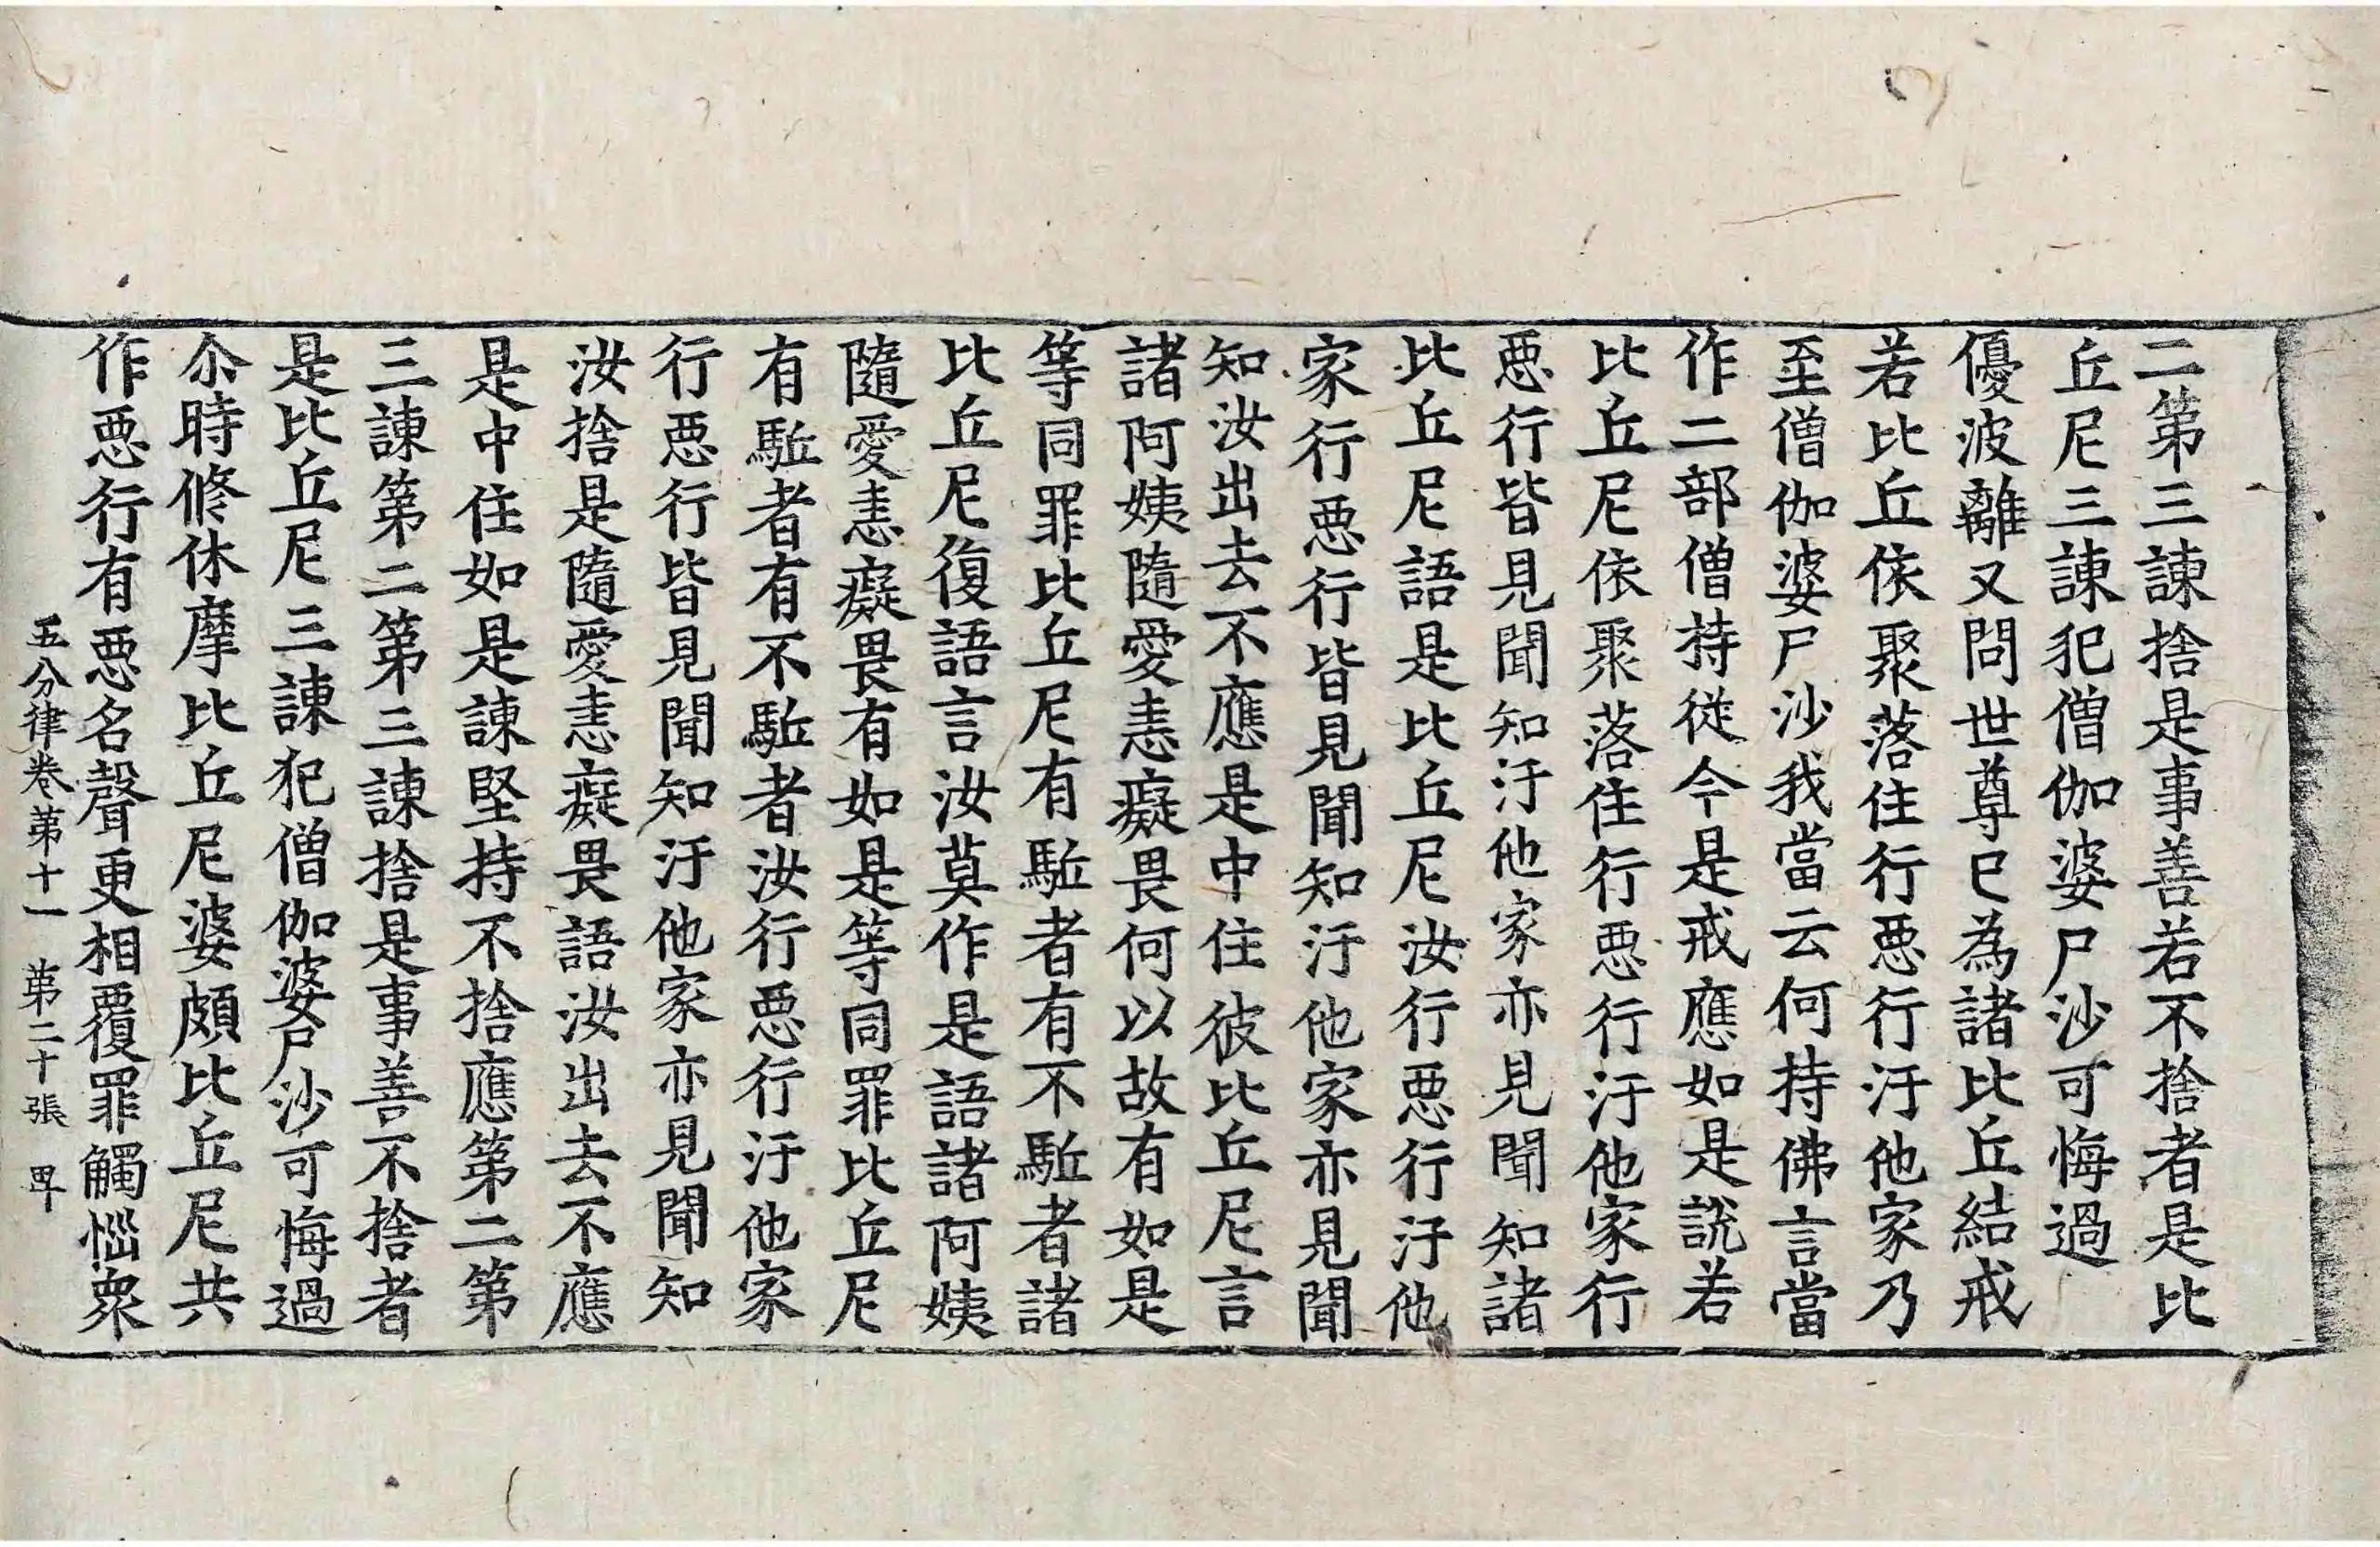 二第三諫捨是事善若不捨者是比
丘尼三諫犯僧伽婆尸沙可悔過
優波離又問世尊已為諸比丘結戒
若比丘依聚落住行惡行汙他家乃
至僧伽婆尸沙我當云何持佛言當
作二部僧持從今是戒應如是說若
比丘尼依聚落住行惡行汙他家行
惡行皆見聞知汙他家亦見聞知諸
比丘尼語是比丘尼汝行惡行汙他
家行惡行皆見聞知汙他家亦見聞
知汝出去不應是中住彼比丘尼言
諸阿姨隨愛恚癡畏何以故有如是
等同罪比丘尼有駈者有不駈者諸
比丘尼復語言汝莫作是語諸阿姨
隨愛恚癡畏有如是等同罪比丘尼
有駈者有不駈者汝行惡行汙他家
行惡行皆見聞知汙他家亦見聞知
汝捨是隨愛恚癡畏語汝出去不應
是中住如是諫堅持不捨應第二第
三諫第二第三諫捨是事善不捨者
是比丘尼三諫犯僧伽婆尸沙可悔過
尒時修休摩比丘尼婆頗比丘尼共
作惡行有惡名聲更相覆罪觸惱衆
五分律卷第十一 第二十張 畀